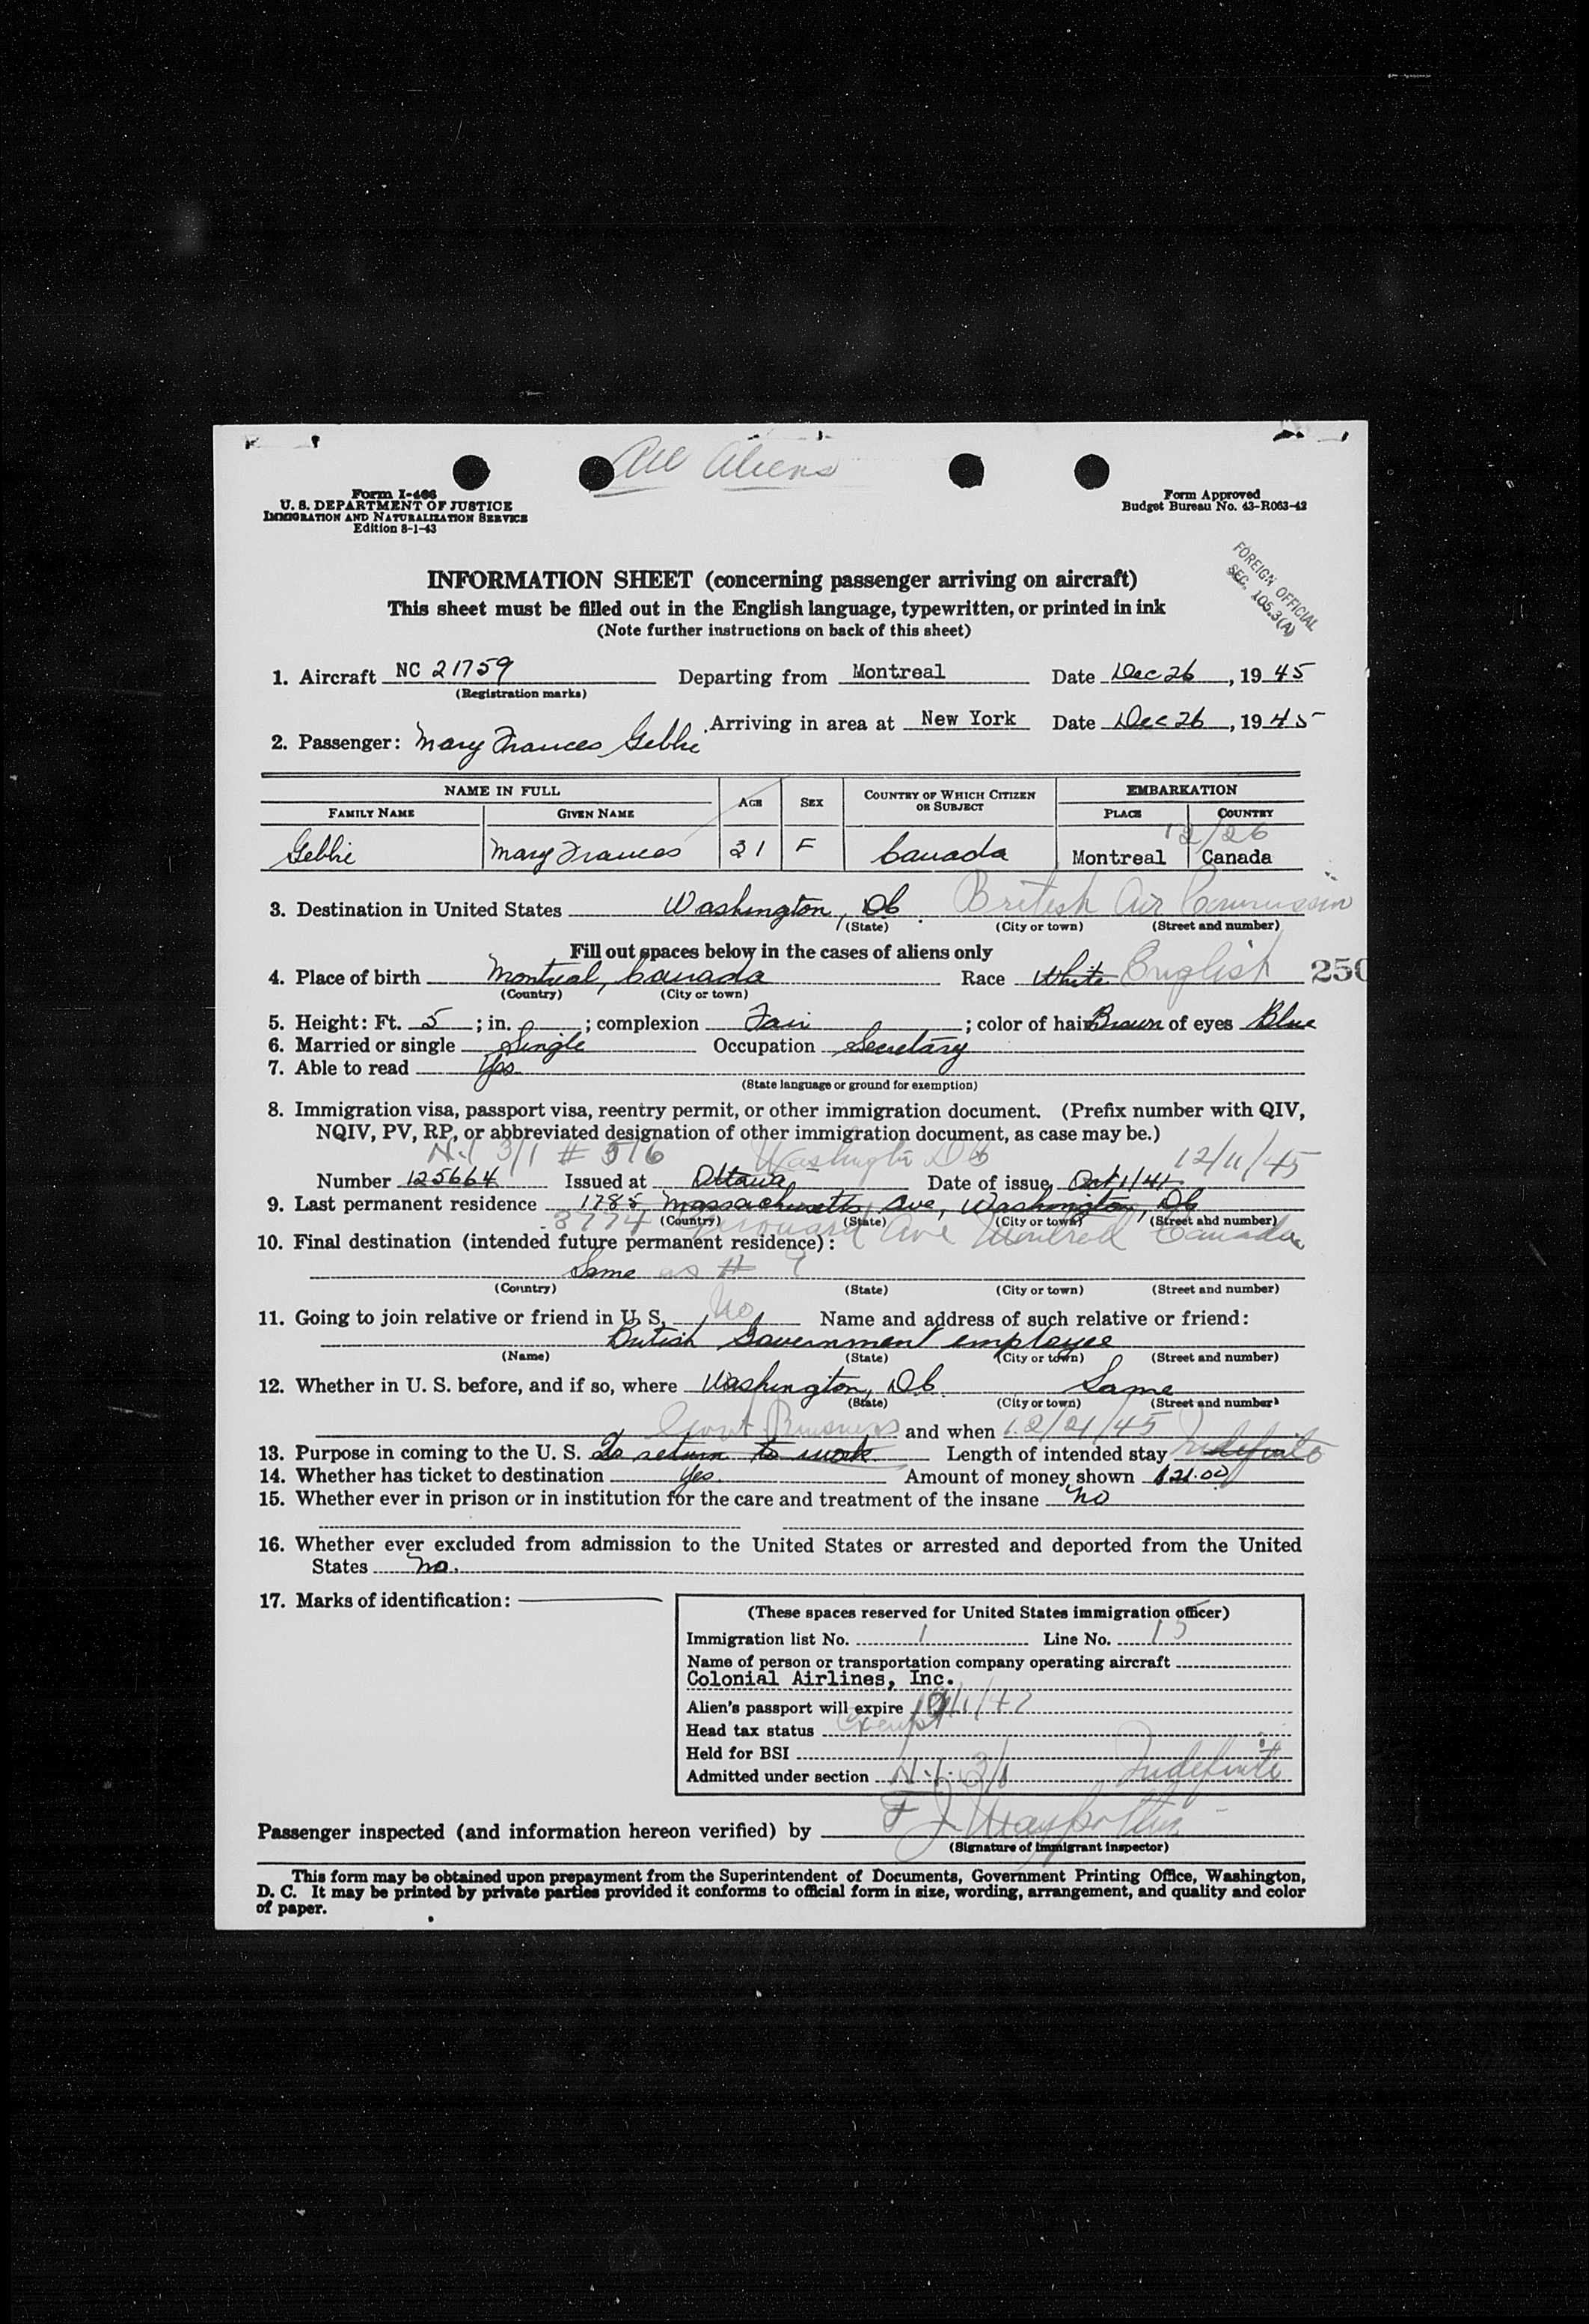 All Aliens
Form I-466
U. S. DEPARTMENT OF JUSTICE
IMMIGRATION AND NATURALIZATION SERVICE
Edition 8-1-43
Form Approved
Budget Bureau No. 43-R063-42
FOREIGN OFFICIAL
SEC. 105.3(A)
INFORMATION SHEET (concerning passenger arriving on aircraft)
This sheet must be filled out in the English language, typewritten, or printed in ink
(Note further instructions on back of this sheet)
1. Aircraft NC 21759 Departing from Montreal Date Dec 26, 1945
(Registration marks)
Arriving in area at New York Date Dec 26, 1945
2. Passenger: Mary Frances Gebbie
NAME IN FULL AGE SEX COUNTRY OF WHICH CITIZEN OR SUBJECT EMBARKATION
FAMILY NAME GIVEN NAME PLACE COUNTRY
12/26
Gebbie Mary Frances 31 F Canada Montreal Canada
3. Destination in United States Washington, DC British Air Commission
(State) (City or town) (Street and number)
Fill out spaces below in the cases of aliens only
4. Place of birth Montreal, Canada Race White English 250
(Country) (City or town)
5. Height: Ft. 5; in. ; complexion Fair; color of hair Brown of eyes Blue
6. Married or single Single Occupation Secretary
7. Able to read Yes
(State language or ground for exemption)
8. Immigration visa, passport visa, reentry permit, or other immigration document. (Prefix number with QIV,
NQIV, PV, RP, or abbreviated designation of other immigration document, as case may be.)
3/1 # 516 Washington DC 12/11/45
Number 125664 Issued at Ottawa Date of issue Oct 1/41
9. Last permanent residence 1785 Massachusetts Ave, Washington, DC
(Country) (State) (City or town) (Street and number)
3774 Girouard Ave Montreal Canada
10. Final destination (intended future permanent residence):
Same as # 9
(Country) (State) (City or town) (Street and number)
11. Going to join relative or friend in U. S. No Name and address of such relative or friend:
British Government employee
(Name) (State) (City or town) (Street and number)
12. Whether in U. S. before, and if so, where Washington, DC Same
(State) (City or town) (Street and number)
Govt Business and when 12/21/45
13. Purpose in coming to the U. S. To return to work Length of intended stay Indefinite
14. Whether has ticket to destination Yes. Amount of money shown $21.00
15. Whether ever in prison or in institution for the care and treatment of the insane No
16. Whether ever excluded from admission to the United States or arrested and deported from the United
States No.
17. Marks of identification:
(These spaces reserved for United States immigration officer)
Immigration list No. 1 Line No. 15
Name of person or transportation company operating aircraft
Colonial Airlines, Inc.
Alien's passport will expire 10/1/47
Head tax status Exempt
Held for BSI
Admitted under section 3/1 Indefinite
Passenger inspected (and information hereon verified) by
(Signature of immigrant inspector)
This form may be obtained upon prepayment from the Superintendent of Documents, Government Printing Office, Washington,
D. C. It may be printed by private parties provided it conforms to official form in size, wording, arrangement, and quality and color
of paper.